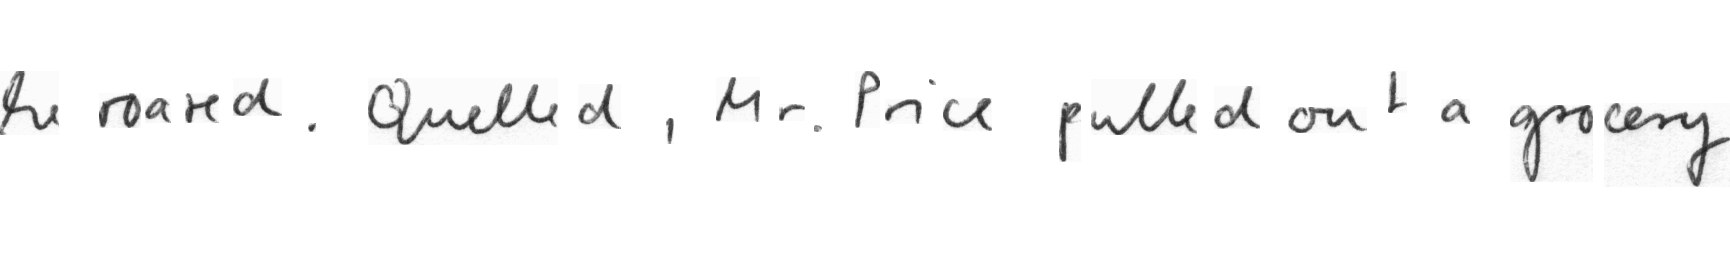 he roared. Quelled, Mr. Price pulled out a grocery